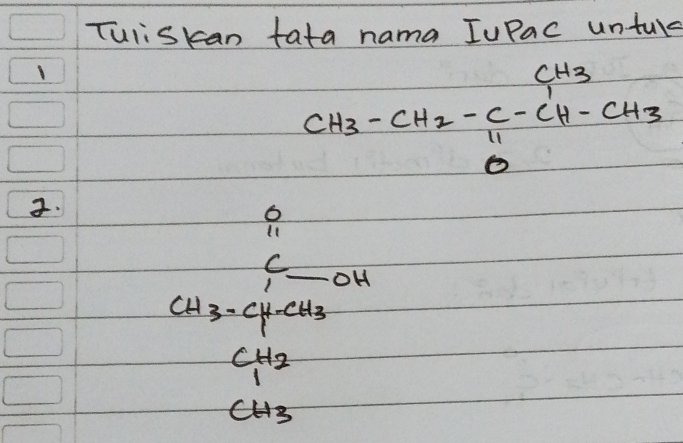 Tuliskan tata nama IUPAC untuk
1
CH3
CH3 - CH2 - C - CH - CH3
O
2.
O
C — OH
CH3 - CH - CH3
CH2
CH3